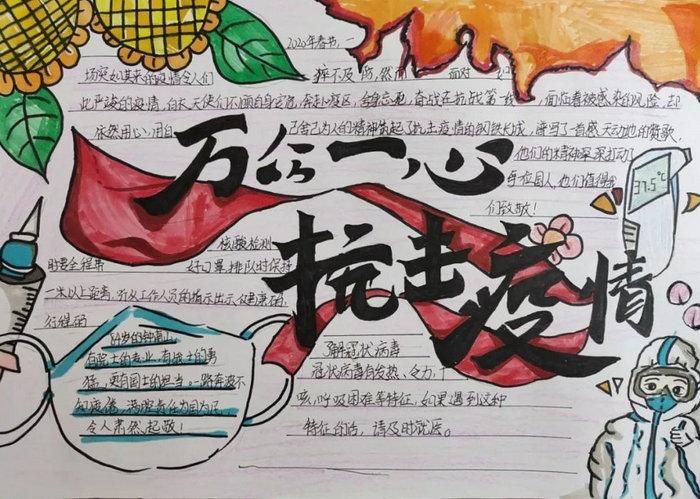 2020年春节,一
场突如其来的疫情令人们 猝不及防,然而 面对
此严峻的疫情,白天使们不顾自身安危,奔赴疫区,舍身忘死,奋战在抗战第一 ,面临着被感染的风险,却
依然用心,用自 己舍己为人的精神筑起了抗击疫情的钢铁长城,谱写了一首感天动地的赞歌,
他们的精神深深打动了
每位国人,他们值得我
们致敬!
万众一心
抗击疫情
37.5℃
核酸检测
时要全程带 好口罩,排队时保持
一米以上距离,听从工作人员的指示出示健康码,
行程码
84岁的钟南山
有院士的专业,有战士的勇
猛,更有国士的担当,一路奔波不
知疲倦,满腔责任为国为民
令人肃然起敬!
了解冠状病毒
冠状病毒有发热、乏力、干
咳,呼吸困难等特征,如果遇到这种
特征的话,请及时就医。